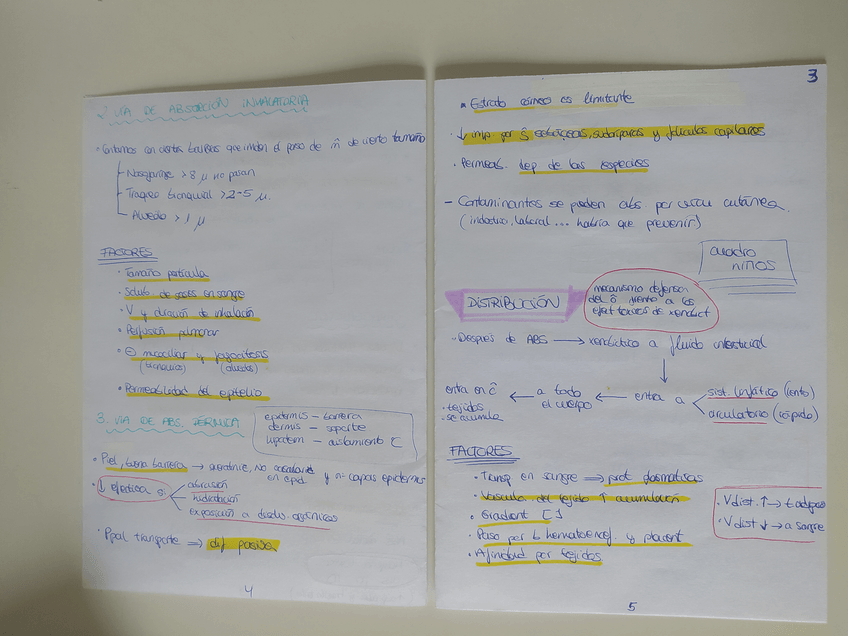 2. VIA DE ABSORCIÓN INHALATORIA
· Contamos con ciertas barreras que impiden el paso de m̂ de cierto tamaño
Nasofaringe > 8 μ no pasan
Traqueo bronquial > 2-5 μ.
Alveolo > 1 μ
FACTORES
· Tamaño partícula
· Solub de gases en sangre
· V y duración de inhalación
· Perfusión pulmonar
· mucociliar y fagocitosis
(bronquios) (alveolos)
· Permeabilidad del epitelio
3. VIA DE ABS. TÉRMICA
epidermis – barrera
dermis – soporte
hipoderm – aislamiento
· Piel, buena barrera → queratinic, no
en epid y nº capas epidermis
· ↓ efectiva si
abrasión
hidratación
exposición a disolv. orgánicos
· Ppal transporte ⇒ dif pasiva
4
3
· Estrato córneo es limitante
· ↓ imp. por ĝ sebáceas, sudoríparas y folículos capilares
· Permeab. dep de las especies
– Contaminantes se pueden abs por vía cutánea.
(industria, laboral... habría que prevenir)
cuadro
niños
DISTRIBUCIÓN
mecanismo defensa
del ô frente a los
efect tóxicos de xenobiot
· Después de ABS → xenobiótico a fluido intersticial
↓
entra a
sist. linfático (lento)
circulatorio (rápido)
← a todo
el cuerpo
← entra en ĉ
· tejidos
· se acumula
FACTORES
· Transp en sangre ⇒ prot plasmáticas
· Vascula. del tejido ↑ acumulación
· Gradient [ ]
· Paso por b hematoencf. y placent
· Afinidad por tejidos
· V dist. ↑ → t adipos
· V dist ↓ → a sangre
5